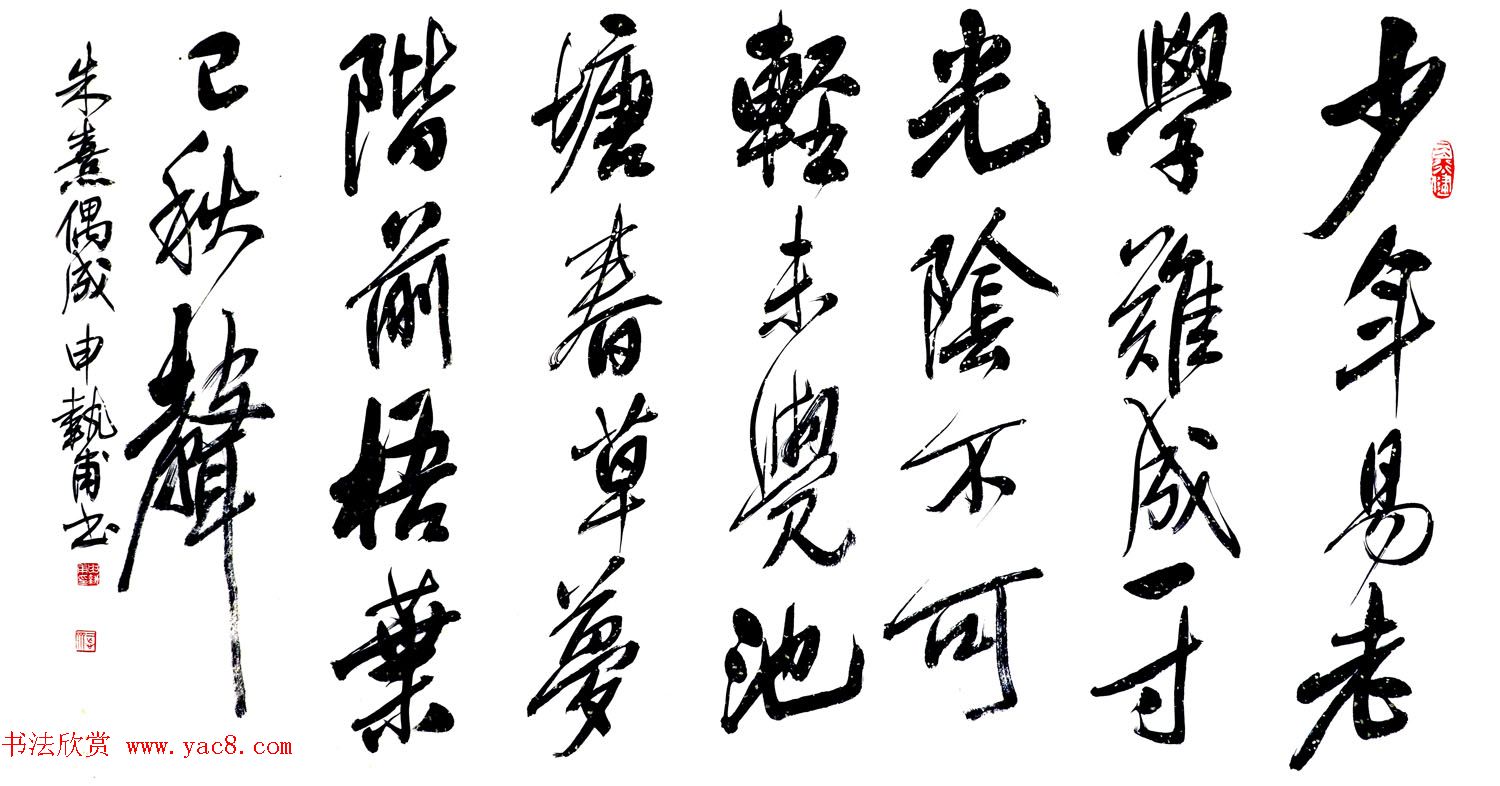 少年易老
學難成一寸
光陰不可
軽未覺池
塘春草夢
階前梧葉
已秋聲
朱熹偶成 申執甫书
书法欣赏 www.yac8.com